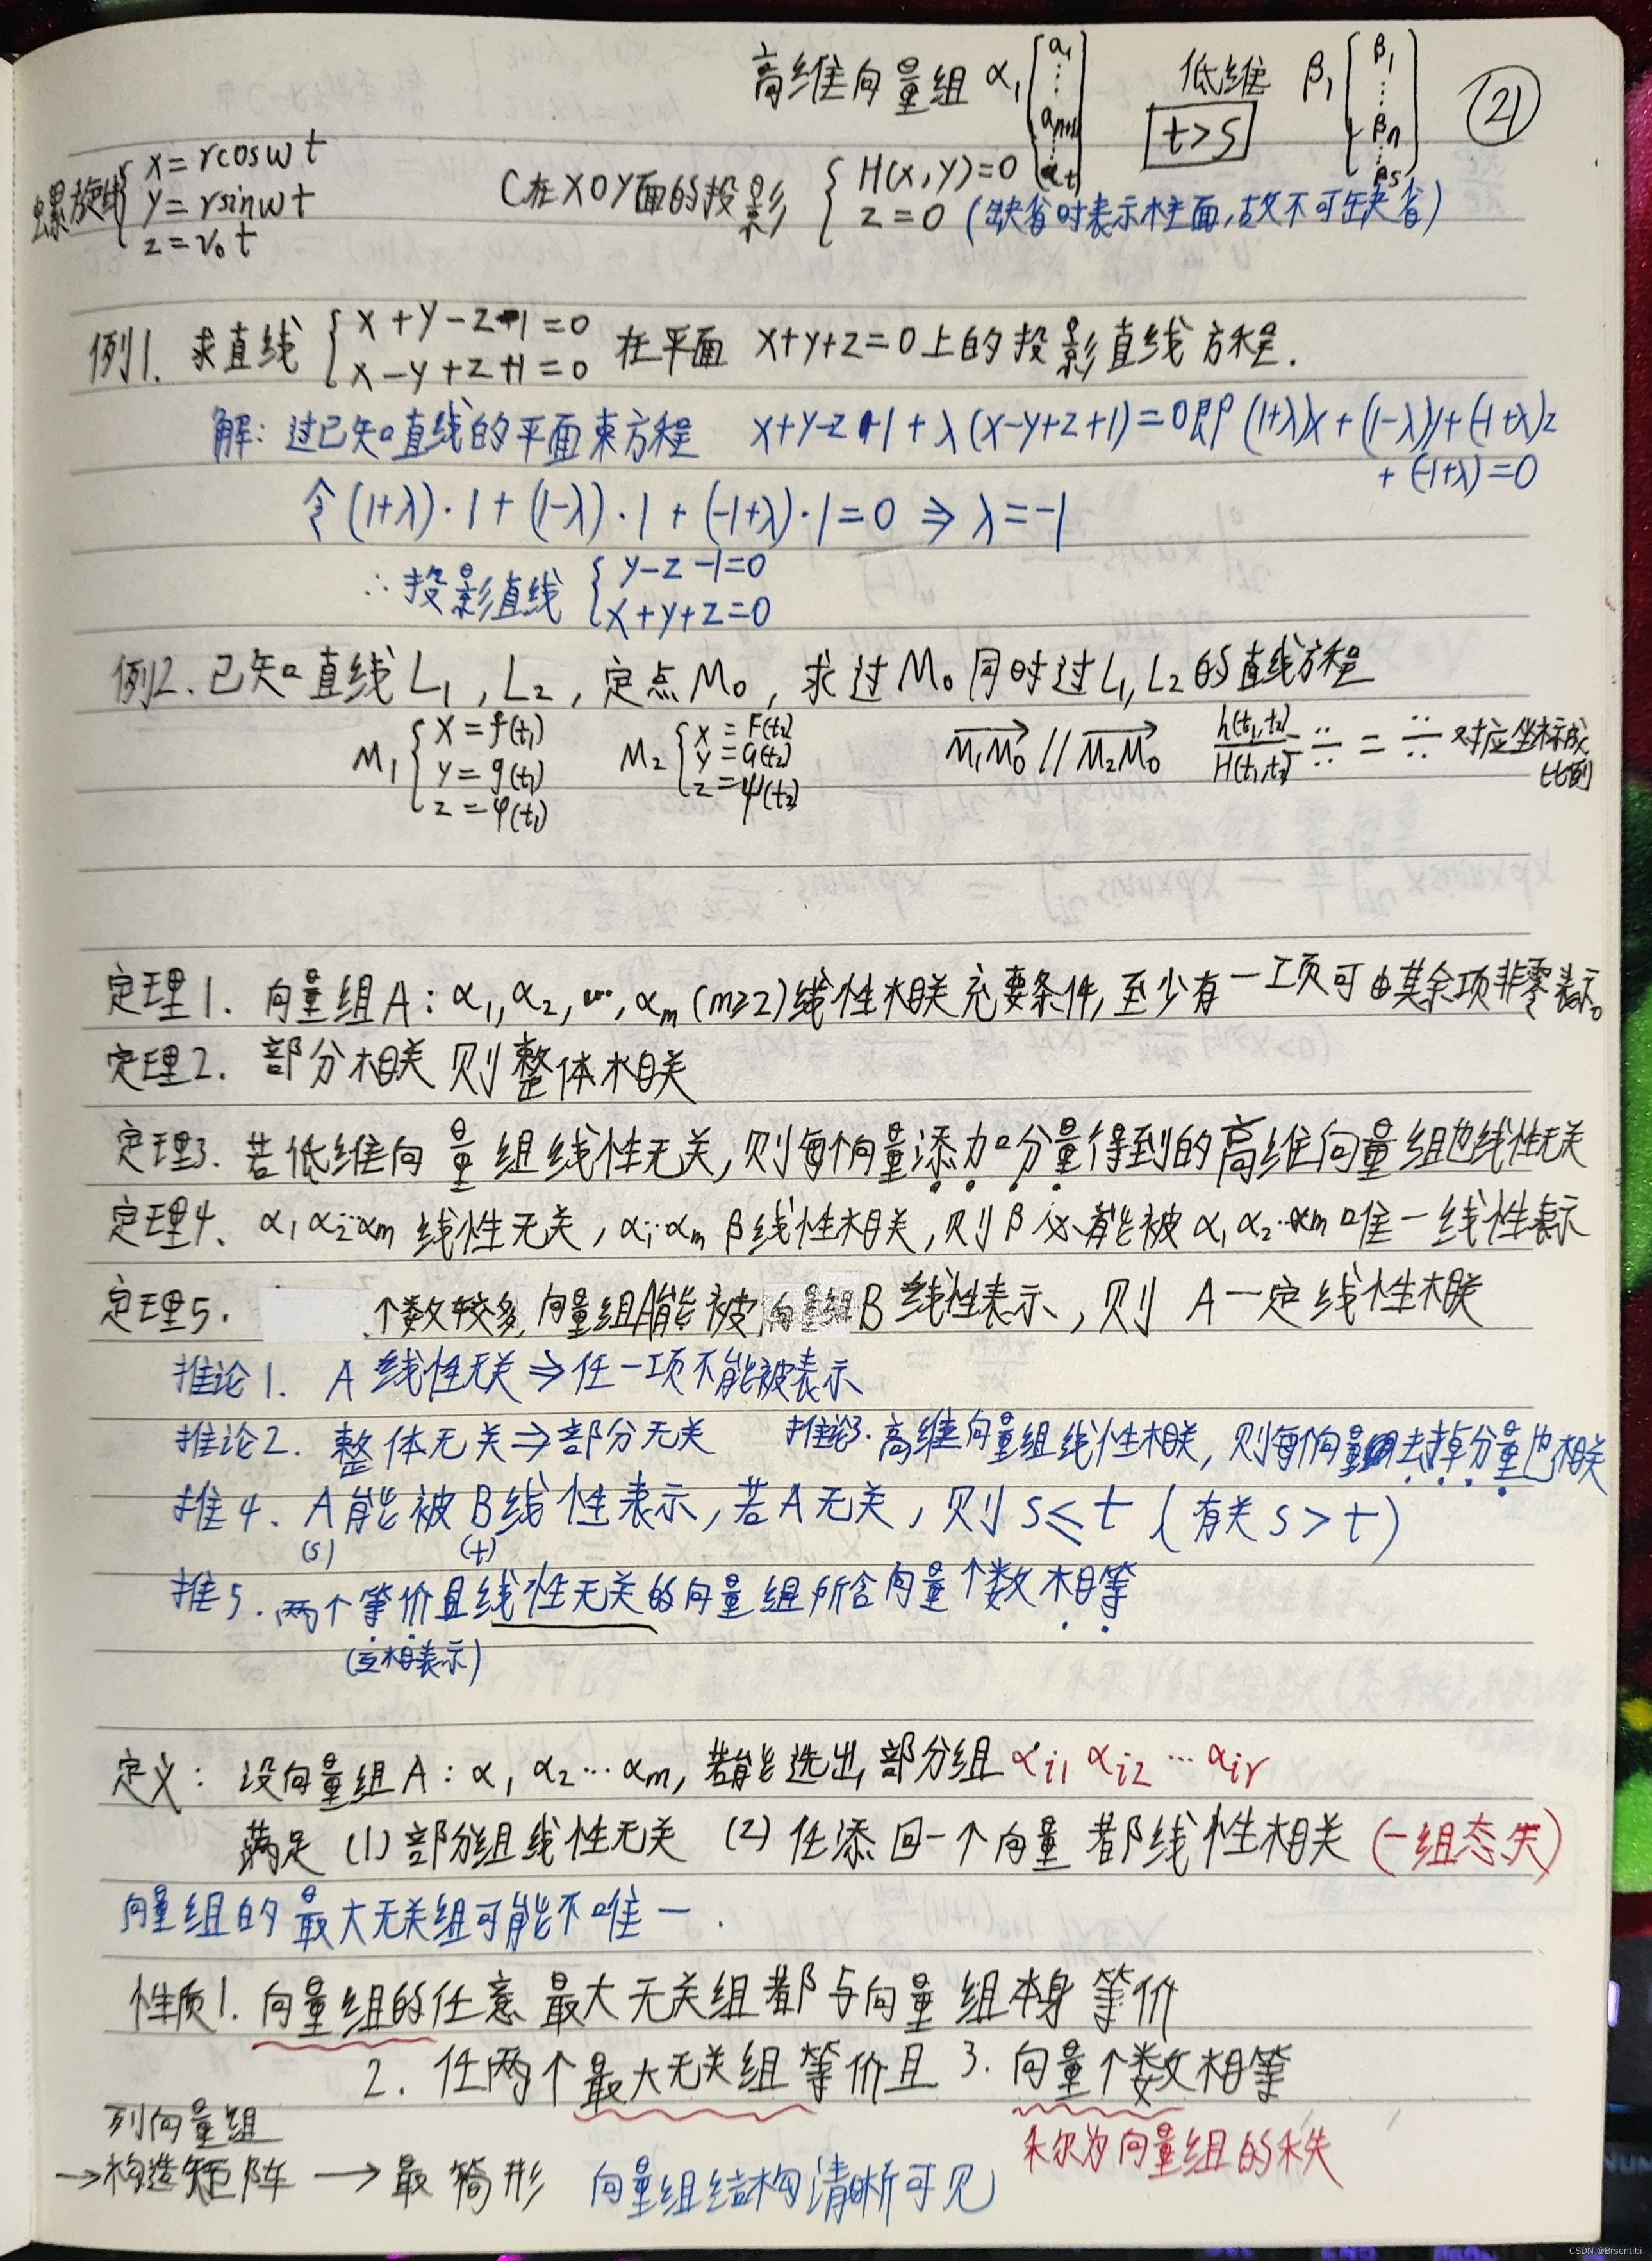 高维向量组 α₁ [a₁ ⋮ aₙ₊₁ ⋮ αt] 低维 β₁ [β₁ ⋮ βn ⋮ βs] ㉑
t>s
螺旋线 { x=rcosωt
y=rsinωt
z=v₀t
C在XOY面的投影 { H(x,y)=0
z=0 (缺省时表示柱面,故不可缺省)
例1. 求直线 { x+y-z-1=0
x-y+z+1=0 在平面 x+y+z=0上的投影直线方程.
解: 过已知直线的平面束方程 x+y-z-1+λ(x-y+z+1)=0即(1+λ)x+(1-λ)y+(-1+λ)z
+(-1+λ)=0
令(1+λ)·1+(1-λ)·1+(-1+λ)·1=0 ⇒ λ=-1
∴投影直线 { y-z-1=0
x+y+z=0
例2.已知直线L₁,L₂,定点M₀,求过M₀同时过L₁,L₂的直线方程
M₁ { x=f(t₁)
y=g(t₁)
z=φ(t₁)
M₂ { x=F(t₂)
y=G(t₂)
z=ψ(t₂)
M₁M₀ // M₂M₀ h(t₁,t₂)/H(t₁,t₂) = ÷ = ÷ 对应坐标成
比例
定理1. 向量组A: α₁,α₂,…,αm(m≥2)线性相关充要条件,至少有一项可由其余项非零表示。
定理2. 部分相关则整体相关
定理3. 若低维向量组线性无关,则每个向量添加分量得到的高维向量组也线性无关
定理4. α₁α₂…αm线性无关,α₁…αm β线性相关,则β必能被α₁α₂…αm唯一线性表示
定理5. 个数较多向量组A能被向量组B线性表示,则A一定线性相关
推论1. A线性无关⇒任一项不能被表示
推论2. 整体无关⇒部分无关 推论3.高维向量组线性相关,则每个向量去掉分量也相关
推4. A能被B线性表示,若A无关,则s≤t (有关s>t)
(s) (t)
推5.两个等价且线性无关的向量组所含向量个数相等
(互相表示)
定义: 设向量组A: α₁ α₂…αm,若能选出部分组αi₁ αi₂ … αir
满足 (1)部分组线性无关 (2)任添回一个向量都线性相关 (一组态矢)
向量组的最大无关组可能不唯一.
性质1.向量组的任意最大无关组都与向量组本身等价
2. 任两个最大无关组等价且 3. 向量个数相等
称为向量组的秩
列向量组
→构造矩阵 → 最简形 向量组结构清晰可见
CSDN @Brsentibi